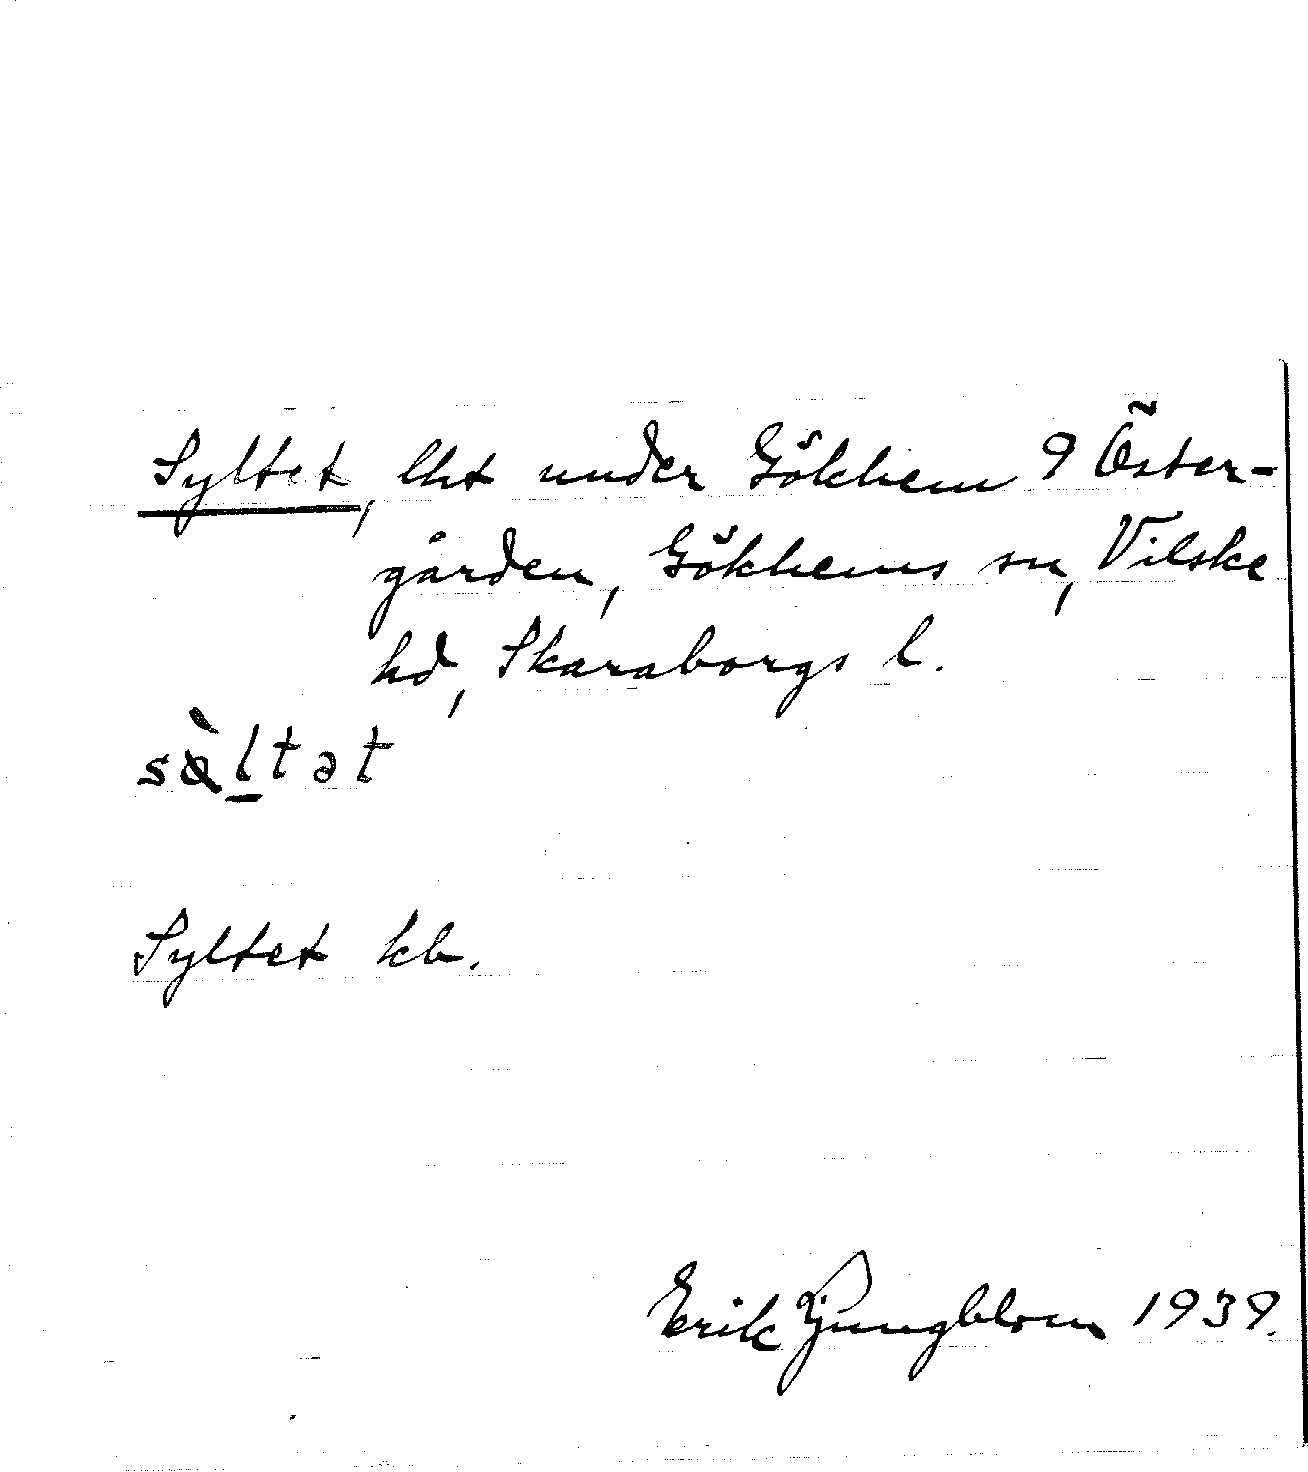 Syltet, lht under Gökhem 9 Öster-
gården, Gökhems sn, Vilske
hd, Skaraborgs l.
Syltet kb.
Erik Ljungblom 1939.